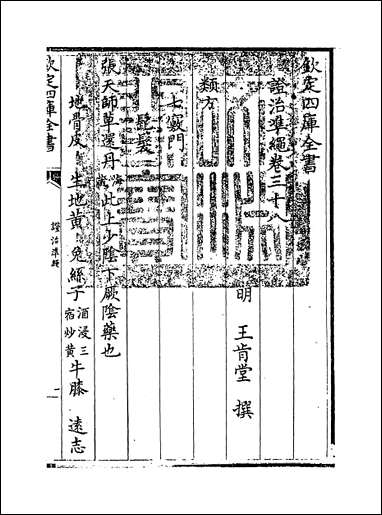 欽定四庫全書
證治準繩卷三十八
明 王肯堂 撰
類方
七竅門
髭髮
張天師草還丹 此上少陰下厥陰藥也
地骨皮 生地黄 兔絲子 酒浸三宿炒黄 牛膝 遠志
欽定四庫全書
證治準繩